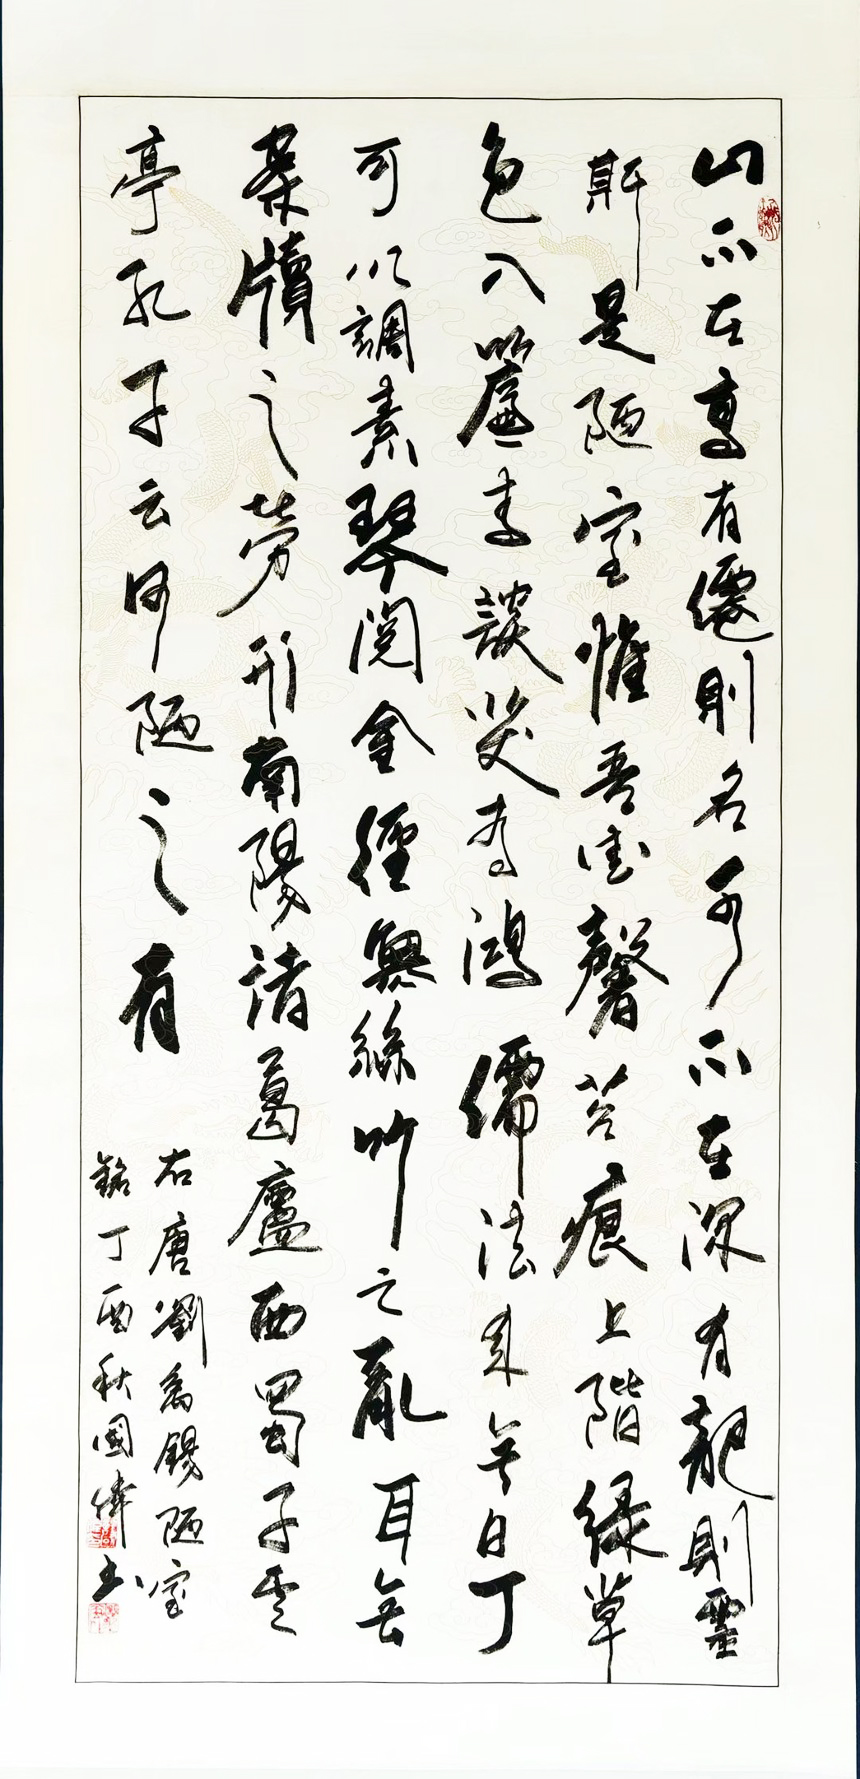 山不在高有僊則名水不在深有龍則靈
斯是陋室惟吾德馨苔痕上階緑草
色入簾青談笑有鴻儒往来無白丁
可以調素琴閲金經無絲竹之亂耳無
案牘之勞形南陽諸葛廬西蜀子雲
亭孔子云何陋之有
右唐劉禹錫陋室
銘丁酉秋國偉书